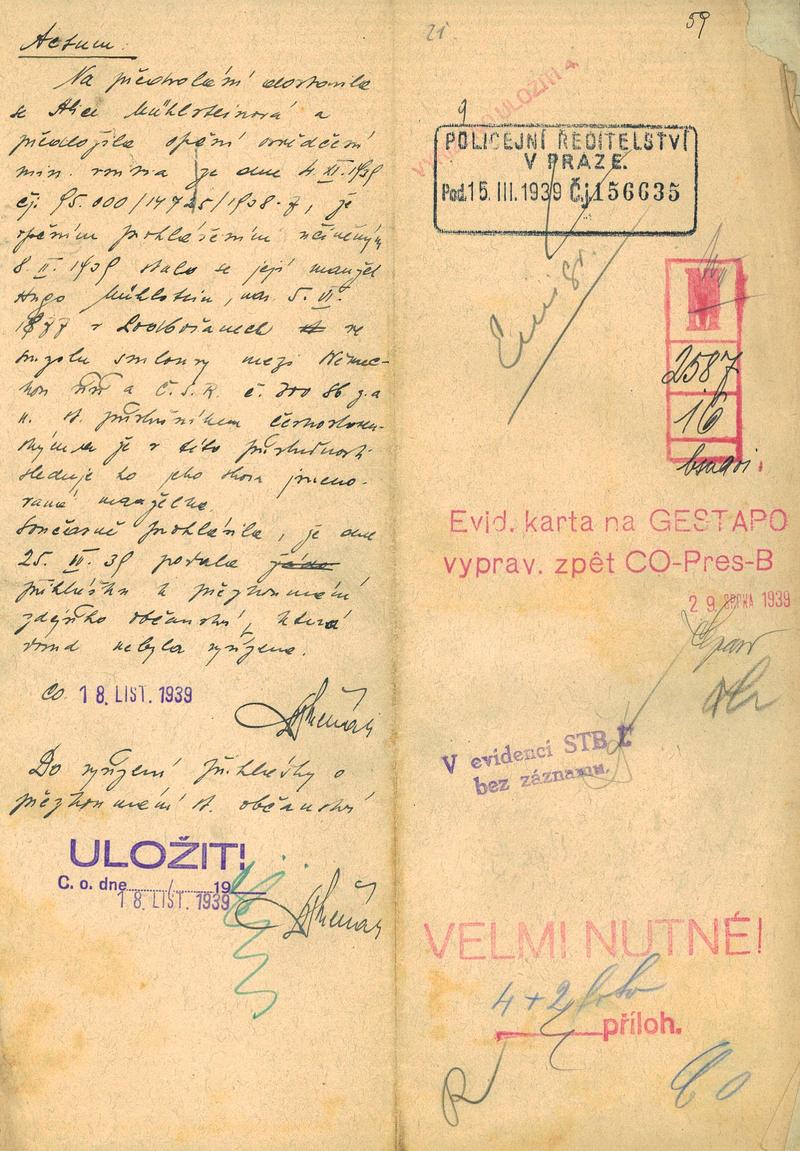 Actum:
Na předvolání dostavila
se Alice Mühlsteinová a
předložila opční osvědčení
min. vnitra ze dne 4. XI. 1939
čj. 95.000/14725/1938-7, že
opčním prohlášením učiněným
8. II. 1939 stalo se její manžel
Hugo Mühlstein, nar. 5. VI.
1877 v Podbořanech ve
smyslu smlouvy mezi Němec-
kou říší a Č.S.R. č. 300 Sb z. a
n. st. příslušníkem českosloven-
ským a že v této příslušnosti
sleduje ho jeho shora jmeno-
vaná manželka.
Současně prohlásila, že dne
25. 39 podala
přihlášku k přezkoumání
zdejšího občanství, která
dosud nebyla vyřízena.
Co 18. LIST. 1939
Do vyřízení přihlášky o
přezkoumání st. občanství
ULOŽIT!
C. o. dne / 19
18. LIST. 1939
21
59
ULOŽITI
9
POLICEJNÍ ŘEDITELSTVÍ
V PRAZE.
Pod. 15. III. 1939 Čj. 156635
Emigr.
2587
16
Evid. karta na GESTAPO
vyprav. zpět CO-Pres-B
29. SRPNA 1939
V evidenci STB E
bez záznamu.
VELMI NUTNÉ!
4 + 2 foto
příloh.
R
Co